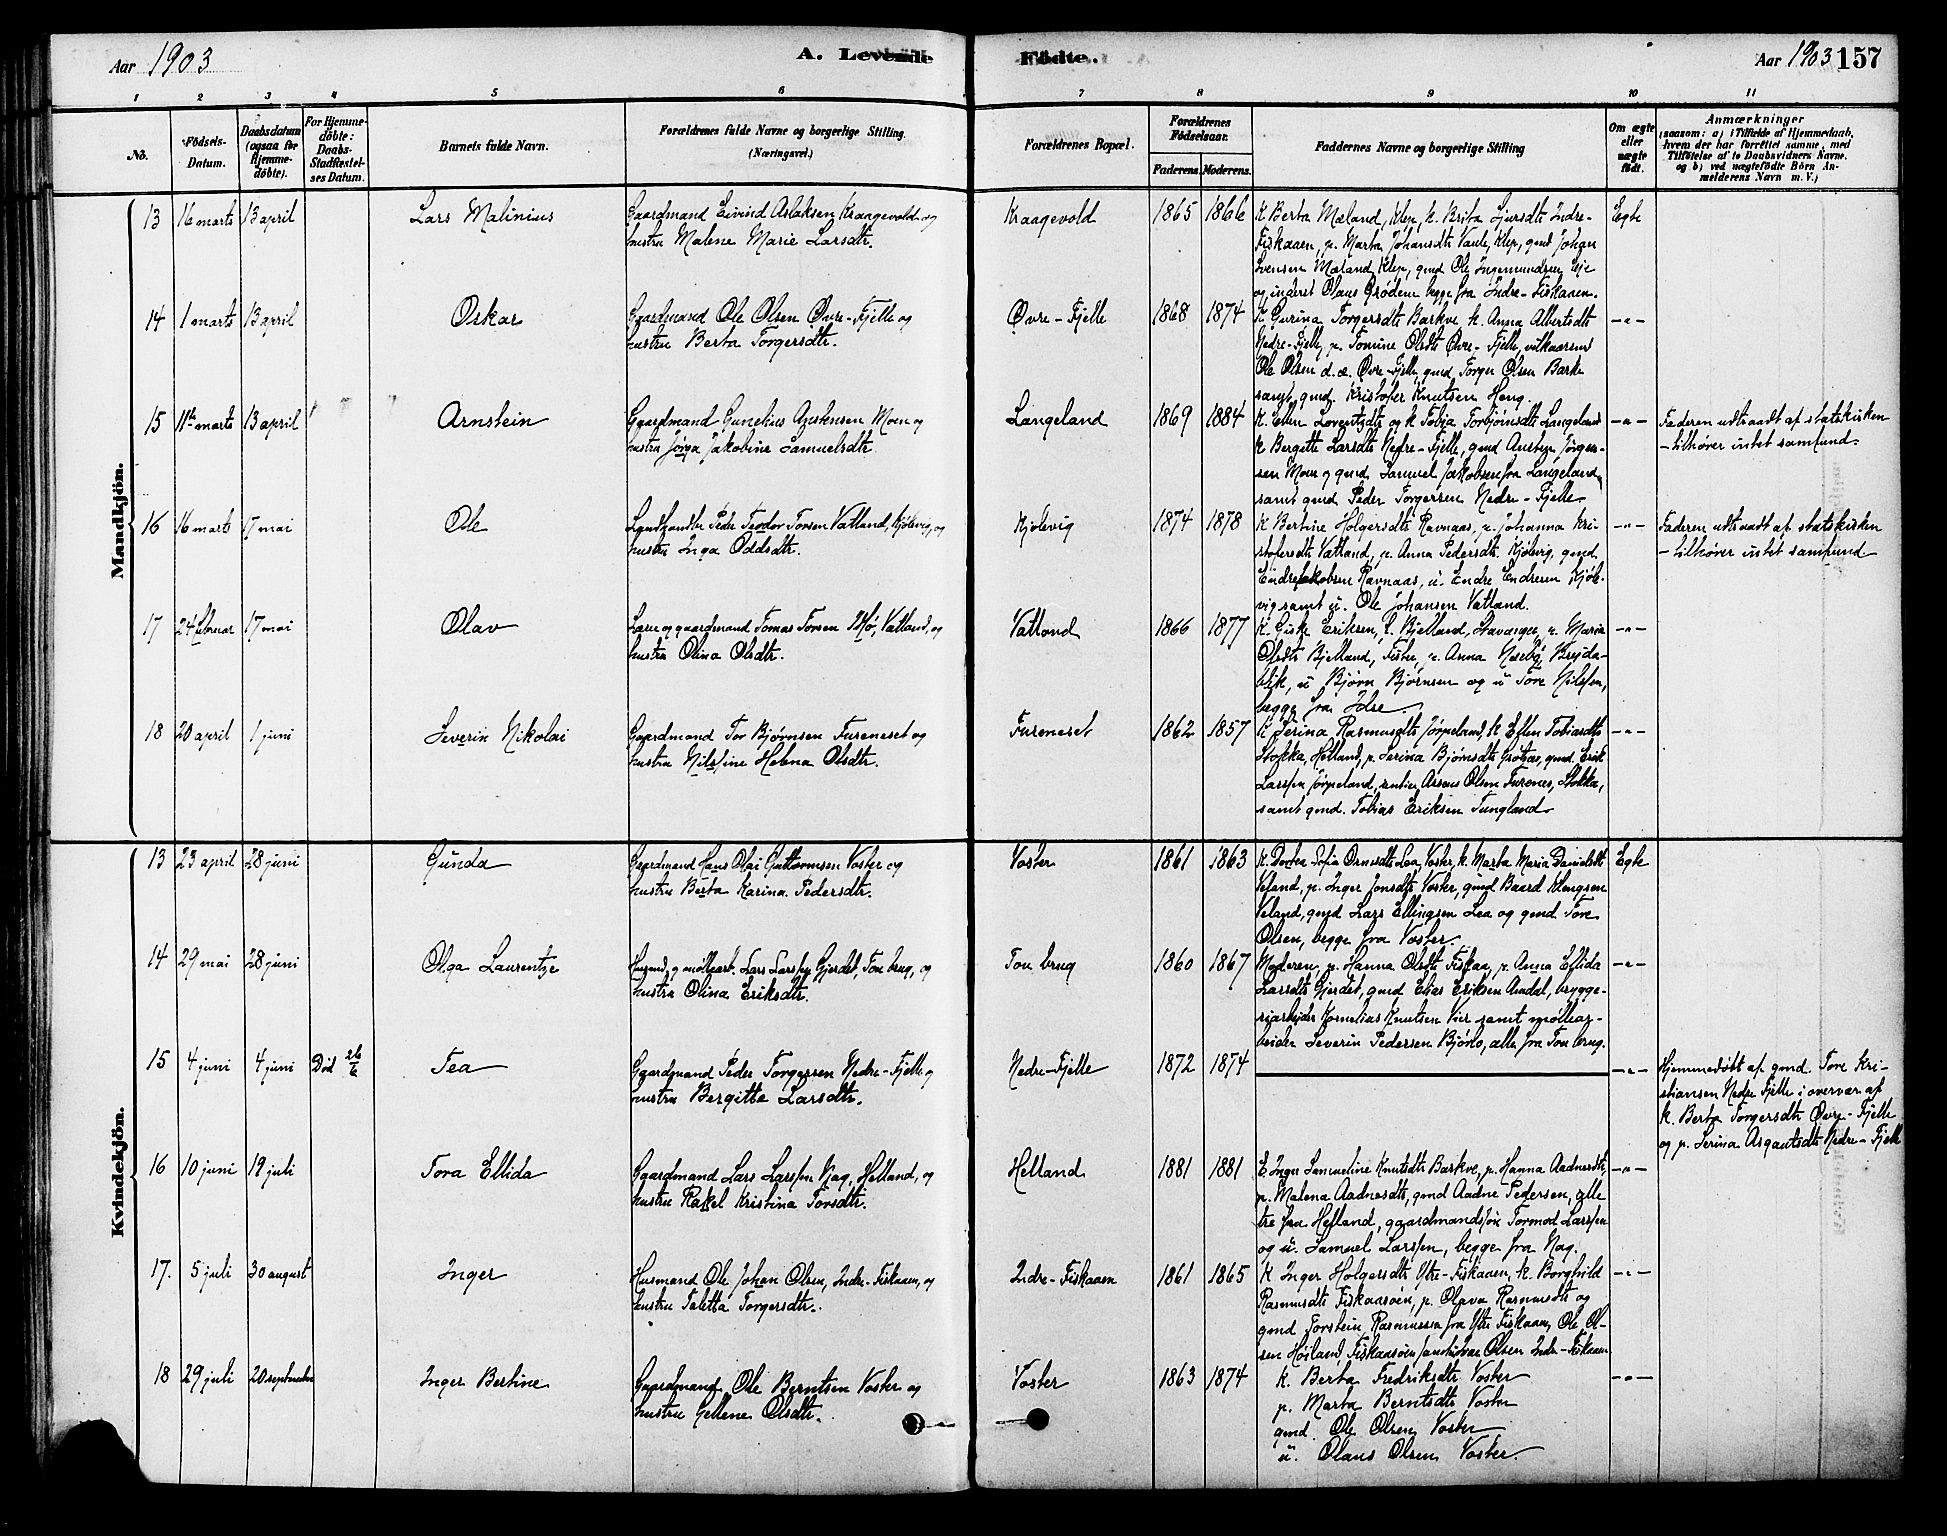 Aar 1903
A. Levende
Födte.
Aar 1903
157
1 2 3 4 5 6 7 8 9 10 11
No.
Födsels-Datum.
Daabsdatum (ogsaa for Hjemmedöbte).
For Hjemmedöbte: Daabs-Stadfæstelses Datum.
Barnets fulde Navn.
Forældrenes fulde Navne og borgerlige Stilling. (Næringsvei.)
Forældrenes Bopæl.
Forældrenes Födselsaar.
Faderens. Moderens.
Faddernes Navne og borgerlige Stilling
Om ægte eller uægte födt.
Anmærkninger
(saasom: a) i Tilfælde af Hjemmedaab,
hvem der har forrettet samme, med
Tilföielse af to Daabsvidners Navne,
og b) ved uægtefödte Börn An-
melderens Navn m. V.)
Mandkjön.
13 16 marts 13 april Lars Malinius
Gaardmand Eivind Aslaksen Kraagevold og
hustru Malene Marie Larsdtr.
Kraagevold 1865 1866
K Berta Mæland, Klep, k. Brita Sjursdtr Indre-
Fiskaaen, p. Marta Johansdtr Vaule, Klep, gmd Johan
Svensen Mæland, Klep, gmd Ole Ingemundsen Eje
og inderst Olaus Grødem begge fra Indre-Fiskaaen.
Egte
14 1 marts 13 april Oskar
Gaardmand Ole Olsen Øvre-Fjelle og
hustru Berta Torgersdtr.
Øvre-Fjelle 1868 1874
K Gurina Torgersdtr Barkve k. Anna Albertsdtr
Nedre-Fjelle, p. Tomine Olsdtr Øvre-Fjelle, vilkaarsmd
Ole Olsen d.æ. Øvre-Fjelle, gmd Torger Olsen Barkve
samt gmd. Kristofer Knutsen Heng.
-"-
15 11te marts 13 april Arnstein
Gaardmand Gunelius Austensen Moen og
hustru Jørga Jakobine Samuelsdtr.
Langeland 1869 1884
K. Ellen Loventsdtr og k Tobia Torbjørnsdtr Langeland
k Bergitte Larsdtr Nedre-Fjelle, gmd Austeyn Jørgen-
sen Moen og gmd Samuel Jakobsen fra Langeland,
samt gmd Peder Torgersen Nedre-Fjelle
-"-
Faderen udtraadt af statskirken
- tilhører intet samfund.
16 16 marts 17 mai Ole
Landhandler Peder Teodor Torsen Vatland, Kjølevig, og
hustru Inga Oddsdtr.
Kjølevig 1874 1878
K Bertine Holgersdtr Ravnaas, p. Johanna Kri-
stofersdtr Vatland, p. Anna Pedersdtr Kjølevig, gmd.
Endre Jakobsen Ravnaas, u. Endre Endresen Kjøle-
vig samt u. Ole Johansen Vatland.
-"-
Faderen udtraadt af statskirken
- tilhører intet samfund
17 24 februar 17 mai Olav
Lærer og gaardmand Tomas Torsen Mo, Vatland, og
hustru Olina Olsdtr.
Vatland 1866 1877
K. Giske Eriksen, L. Bjelland, Stavanger, p. Maria
Olsdtr Bjelland, Fister, p. Anna Nesebø, Breida-
blik, u Bjørn Bjørnsen og u Tore Nilssen,
begge fra Idse.
-"-
18 20 april 1 juni Severin Nikolai
Gaardmand Tor Bjørnsen Fureneset og
hustru Nilssine Helena Olsdtr.
Fureneset 1862 1857
K Serina Rasmusdtr Jørpeland, k Ellen Tobiasdtr
Stokka, Hetland, p. Serina Bjørnsdtr Grøtnes, gmd Erik
Larssen Jørpeland, rentier Olsen Furenes, Stokka,
samt gmd. Tobias Eriksen Tungland
-"-
Kvindekjön.
13 23 april 28 juni Gunda
Gaardmand Hans Olai Guttormsen Voster og
hustru Berta Karina Pedersdtr.
Voster 1861 1863
K. Dortea Sofia Ornesdtr Lea, Voster, k. Marta Maria Danielsdtr
Veland, p. Inger Jonsdtr Voster, gmd Baard Klengsen
Veland, gmd Lars Ellingsen Lea og gmd Tore
Olsen, begge fra Voster.
Egte
14 29 mai 28 juni Olga Laurentze
Husmd og møllearb. Lars Larssen Gjerdet, Tou brug, og
hustru Olina Eriksdtr.
Tou brug 1860 1867
Moderen, p. Hanna Olsdtr Fiskaa, p. Anna Ellida
Larsdtr Gjerdet, gmd Elias Eriksen Amdal, brygge-
riarbeider Kornelius Knutsen Vier samt møllear-
beider Severin Pedersen Bjørlo, alle fra Tou brug.
-"-
15 4 juni 4 juni Död 26/6 Tea
Gaardmand Peder Torgersen Nedre-Fjelle og
hustru Bergitte Larsdtr.
Nedre-Fjelle 1872 1874
-"-
Hjemmedøbt af gmd. Tore Kri-
stiansen Nedre Fjelle i overvær af
k. Berta Torgersdtr Øvre-Fjelle
og p. Serina Asgautsdtr Nedre-Fjelle
16 10 juni 19 juli Tora Ellida
Gaardmand Lars Larssen Nag, Helland, og
hustru Rakel Kristina Torsdtr.
Helland 1881 1881
E Inger Samueline Knutsdtr Barkve, p. Hanna Aadnesdtr,
p. Malena Aadnesdtr, gmd Aadne Pedersen, alle
tre fra Helland, gaardmandssøn Tormod Larssen
og u. Samuel Larssen, begge fra Nag.
-"-
17. 5 juli 30 august Inger
Husmand Ole Johan Olsen, Indre-Fiskaaen, og
hustru Taletta Torgersdtr.
Indre-Fiskaaen 1861 1865
K Inger Holgersdtr Ytre-Fiskaaen, k. Borghild
Rasmusdtr Fiskaaøen, p. Olava Rasmusdtr og
gmd Torstein Rasmussen fra Ytre Fiskaaen, Ole Ol-
sen Høiland, Fiskaaøen samt Olsen Indre-Fiskaaen
-"-
18 29 juli 20 september Inger Bertine
Gaardmand Ole Berntsen Voster og
hustru Gellene Olsdtr.
Voster 1863 1874
k. Berta Fredriksdtr Voster
p. Marta Berntsdtr Voster
gmd. Ole Olsen Voster
u. Olaus Olsen Voster.
-"-